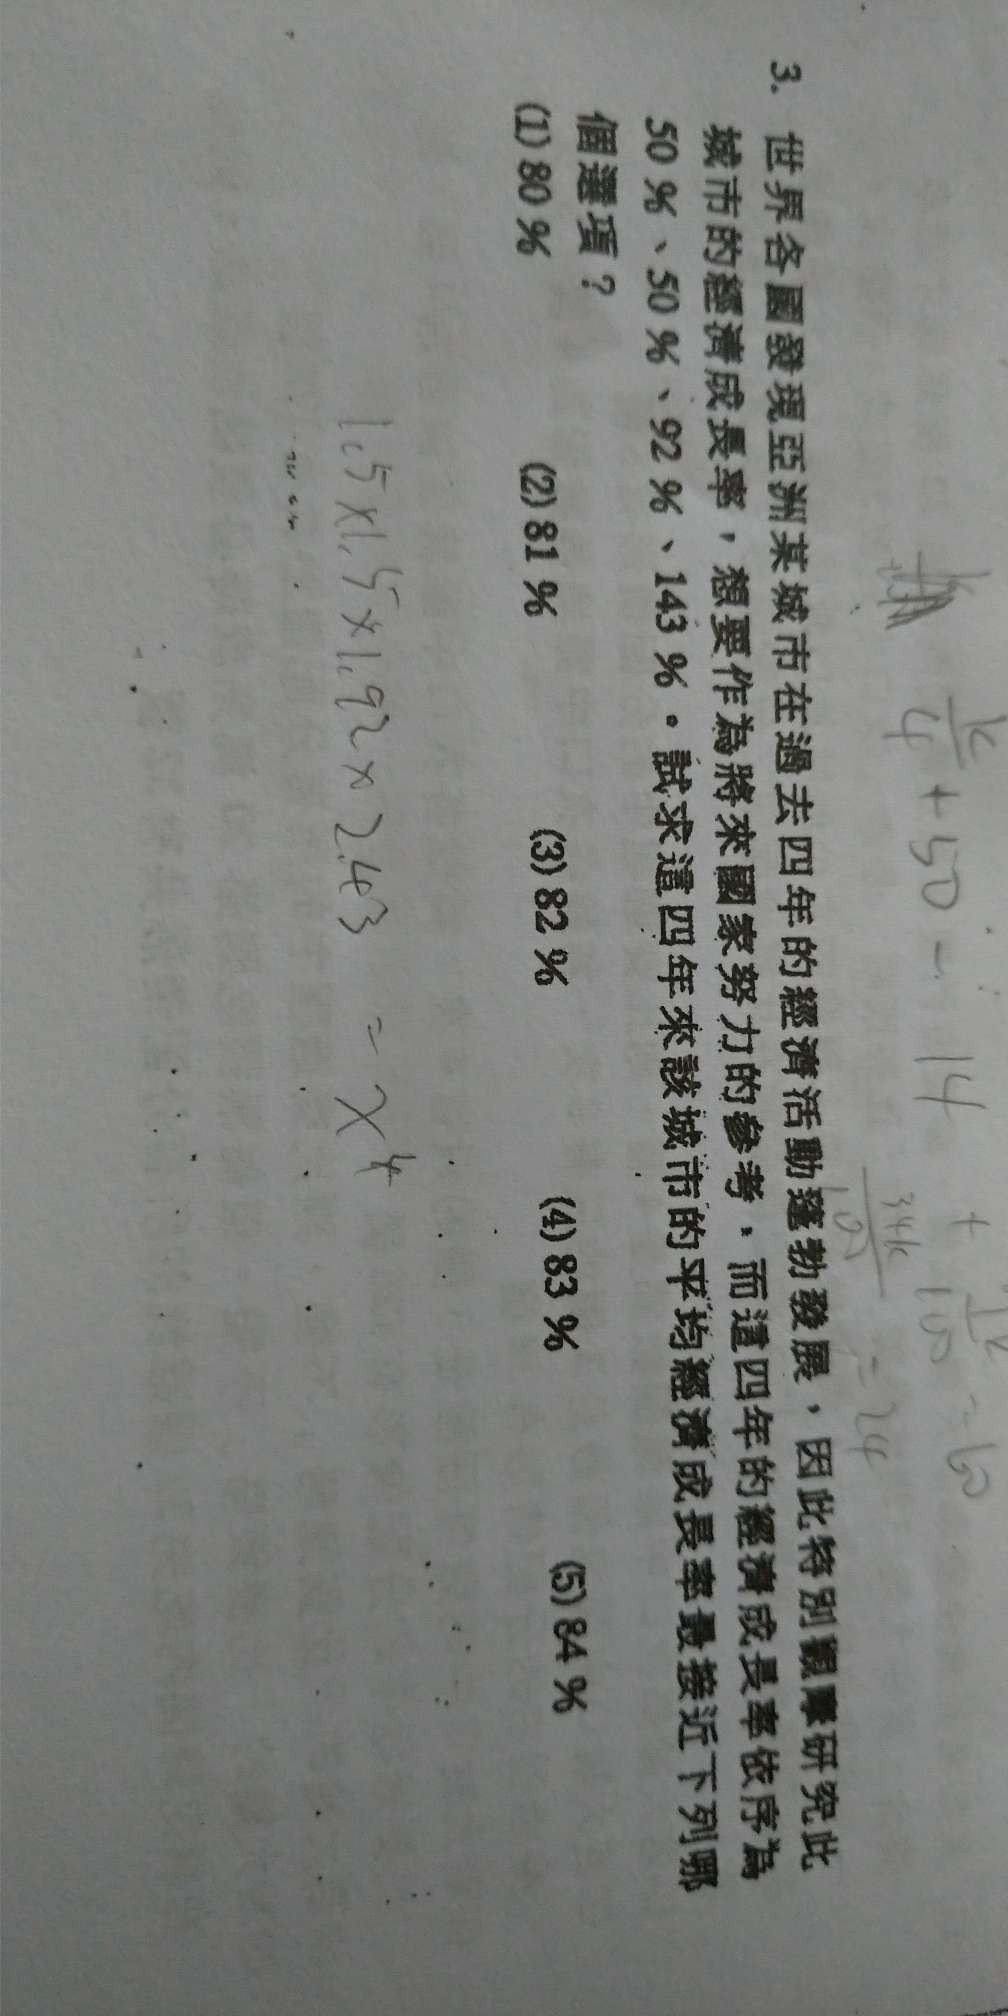 k/4 + 50 - 14 + k/100 - 60
34k/100 = 24
3. 世界各國發現亞洲某城市在過去四年的經濟活動蓬勃發展，因此特別觀摩研究此
城市的經濟成長率，想要作為將來國家努力的參考，而這四年的經濟成長率依序為
50 %、50 %、92 %、143 %。試求這四年來該城市的平均經濟成長率最接近下列哪
個選項？
(1) 80 % (2) 81 % (3) 82 % (4) 83 % (5) 84 %
1.5 x 1.5 x 1.92 x 2.43 = x⁴